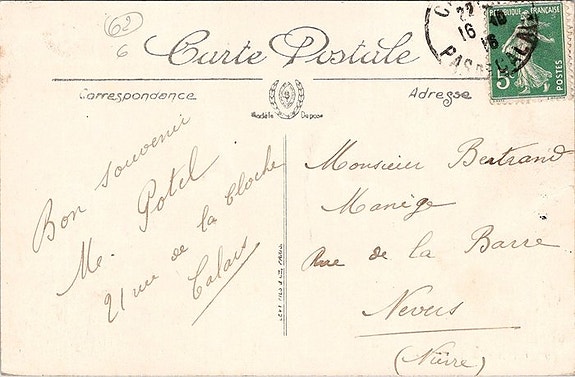 62
6
Carte Postale
Correspondance
Adresse
Modèle Déposé
RÉPUBLIQUE FRANÇAISE
5
POSTES
16
PAS DE CALAIS
Bon souvenir
M. Potel
21 rue de la Cloche
Calais
Monsieur Bertrand
Manège
Rue de la Barre
Nevers
(Nièvre)